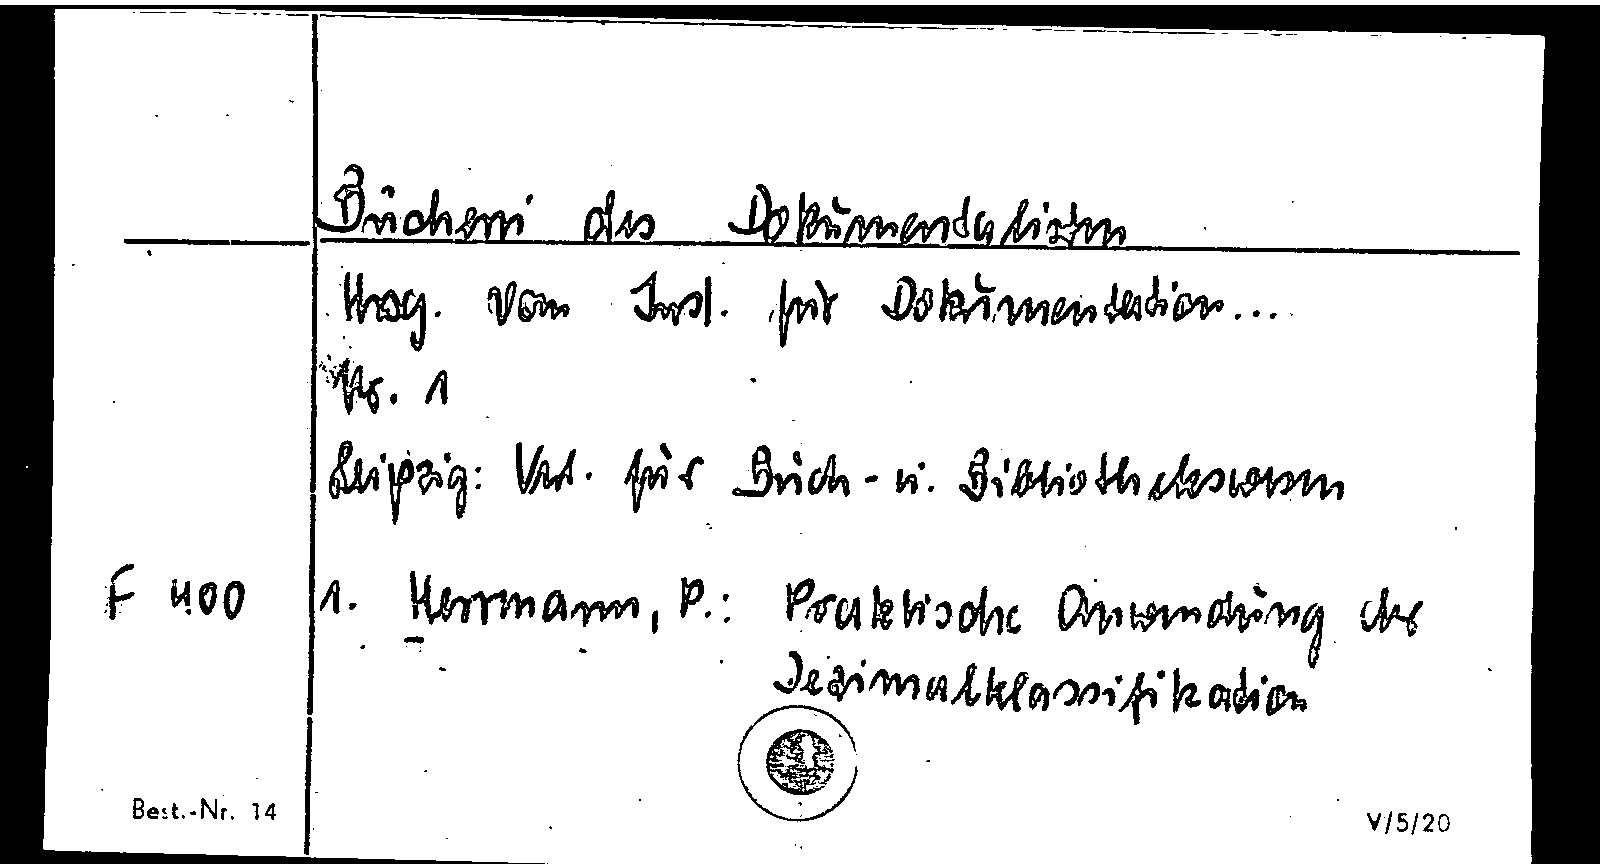 Bücherei des Dokumentalisten
Hrsg. vom Inst. für Dokumentation...
Nr. 1
Leipzig: Verl. für Buch- u. Bibliothekswesen
F 400 1. Herrmann, P.: Praktische Anwendung der
Dezimalklassifikation
Best.-Nr. 14 V/5/20